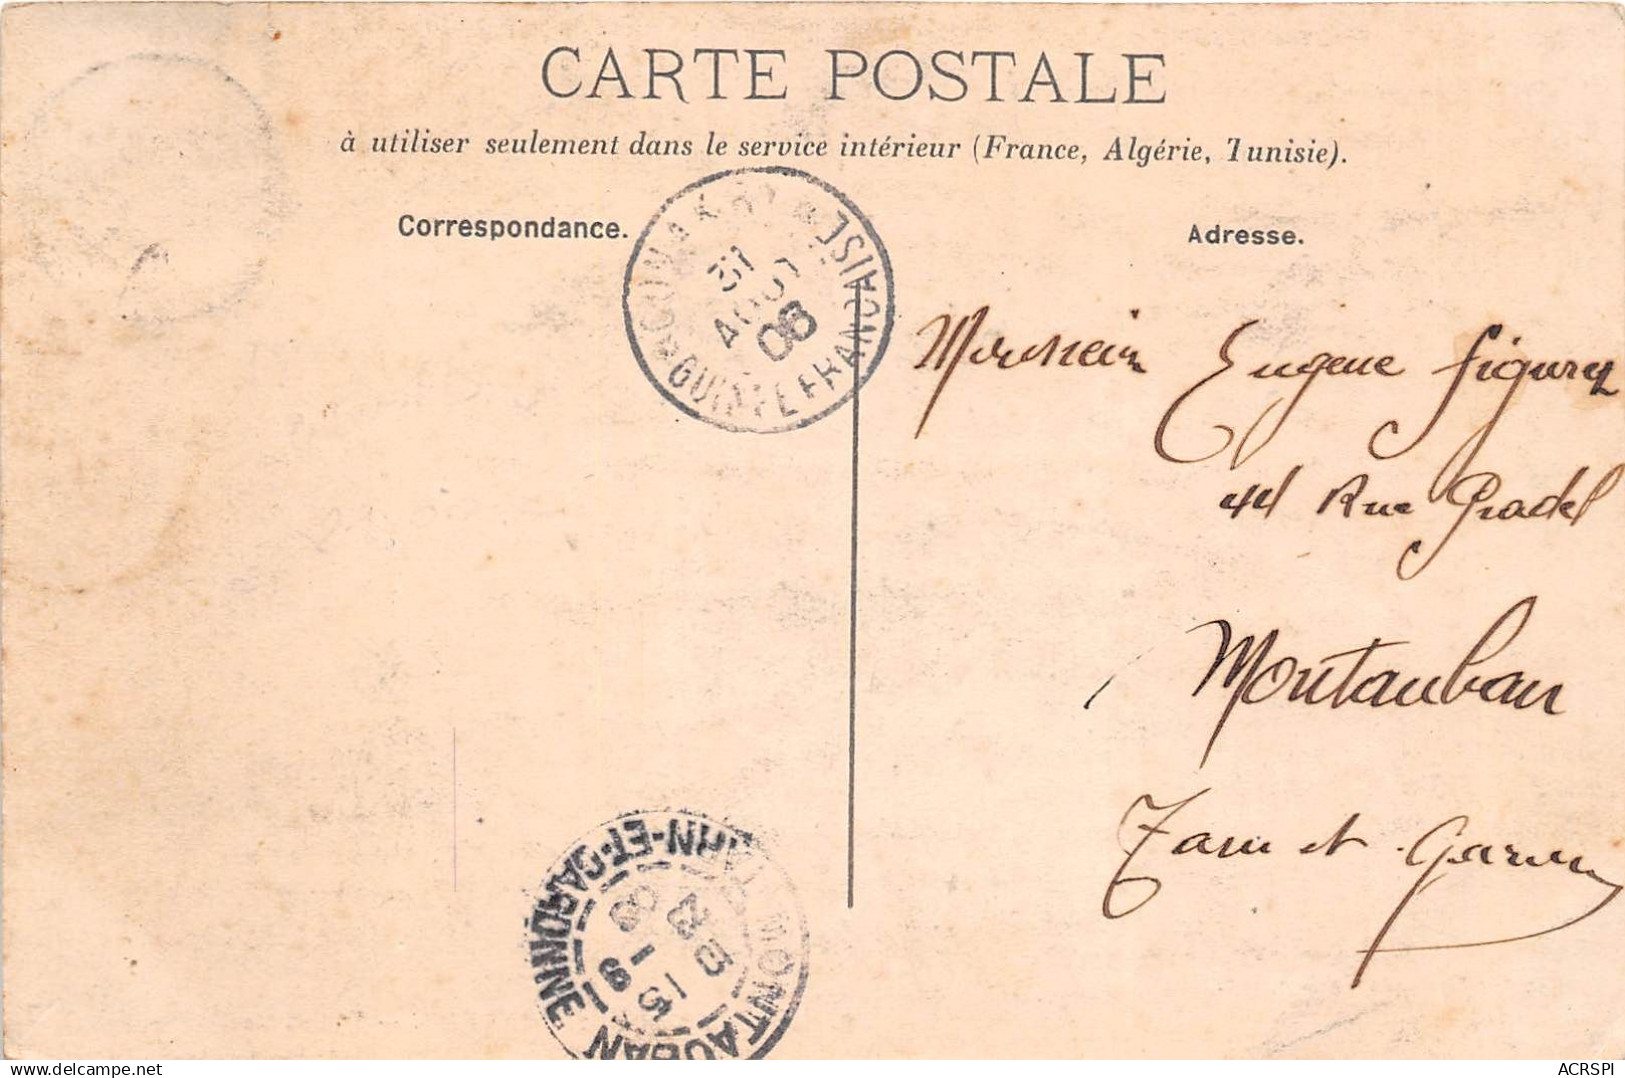 CARTE POSTALE
à utiliser seulement dans le service intérieur (France, Algérie, Tunisie).
Correspondance.
Adresse.
CONAKRY
GUINÉE FRANÇAISE
31
AOUT
08
Monsieur Eugene
44 Rue Pradel
Montauban
Tarn et Garonne
MONTAUBAN
TARN-ET-GARONNE
15-9
08
delcampe.net
ACRSPI